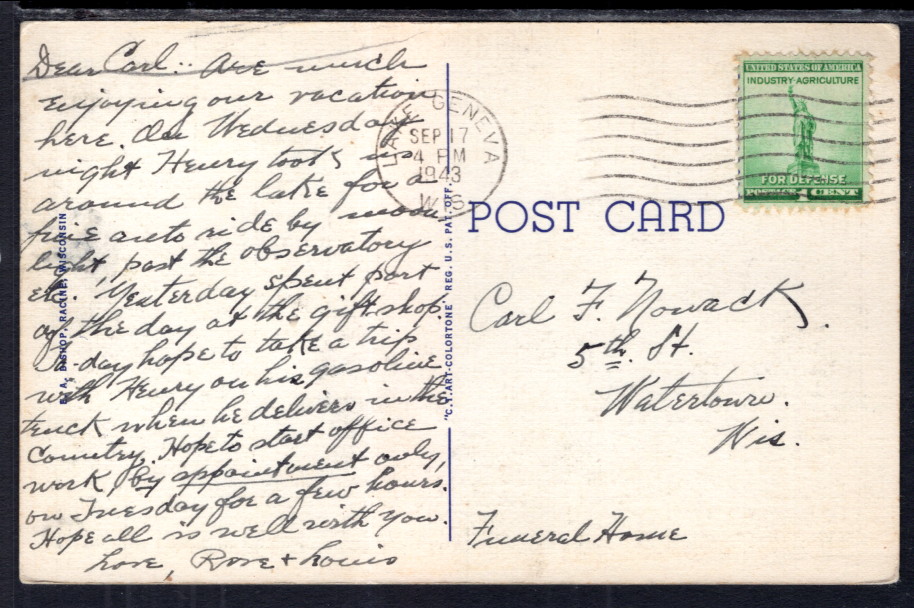 Dear Carl:. Are much
enjoying our vacation
here. On Wednesday
night Henry took us
around the lake for a
fine auto ride by moon
light, past the observatory
etc. Yesterday spent part
of the day at the gift shop.
To-day hope to take a trip
with Henry on his gasoline
truck when he delivers in the
Country. Hope to start office
work, by appointment only,
on Tuesday for a few hours.
Hope all is well with you.
Love, Rose + Louis
E. A. BISHOP, RACINE, WISCONSIN
"C.T. ART-COLORTONE" REG. U.S. PAT. OFF.
LAKE GENEVA
SEP 17
4 PM
1943
WIS.
UNITED STATES OF AMERICA
INDUSTRY·AGRICULTURE
FOR DEFENSE
POSTAGE 1 CENT
POST CARD
Carl F. Nowack.
5th. St.
Watertown.
Wis.
Funeral Home